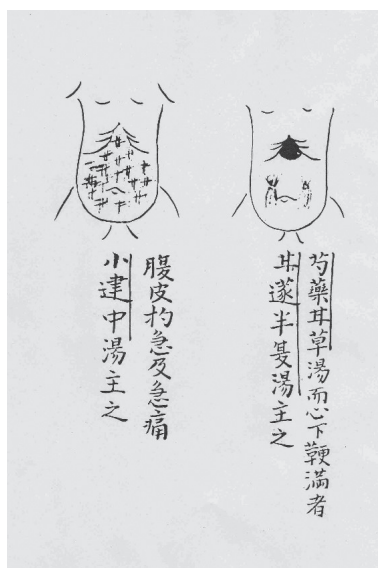 芍藥甘草湯而心下鞕滿者
甘遂半夏湯主之
腹皮拘急及急痛
小建中湯主之